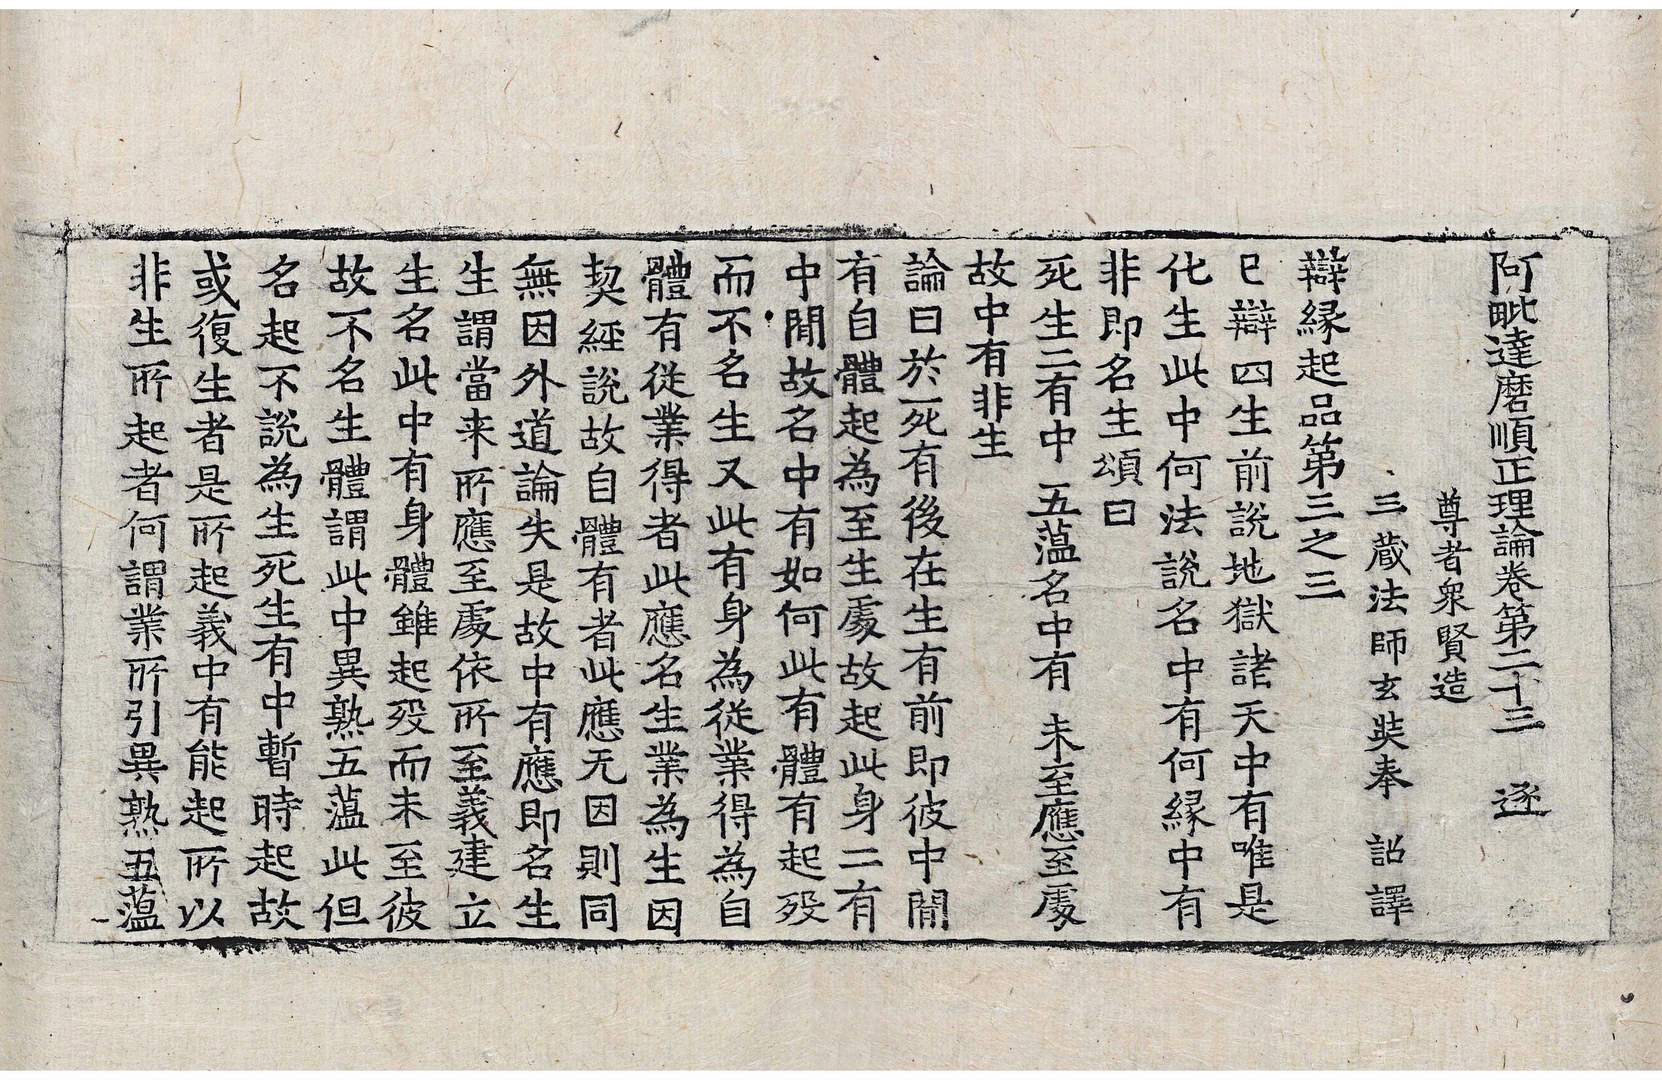 阿毗達磨順正理論卷第二十三　逐
尊者衆賢造
三藏法師玄奘奉　詔譯
辯緣起品第三之三
已辯四生前說地獄諸天中有唯是
化生此中何法說名中有何緣中有
非即名生頌曰
死生二有中　五蘊名中有　未至應至處
故中有非生
論曰於死有後在生有前即彼中閒
有自體起為至生處故起此身二有
中閒故名中有如何此有體有起歿
而不名生又此有身為從業得為自
體有從業得者此應名生業為生因
契經說故自體有者此應无因則同
無因外道論失是故中有應即名生
生謂當来所應至處依所至義建立
生名此中有身體雖起歿而未至彼
故不名生體謂此中異熟五蘊此但
名起不說為生死生有中暫時起故
或復生者是所起義中有能起所以
非生所起者何謂業所引異熟五蘊